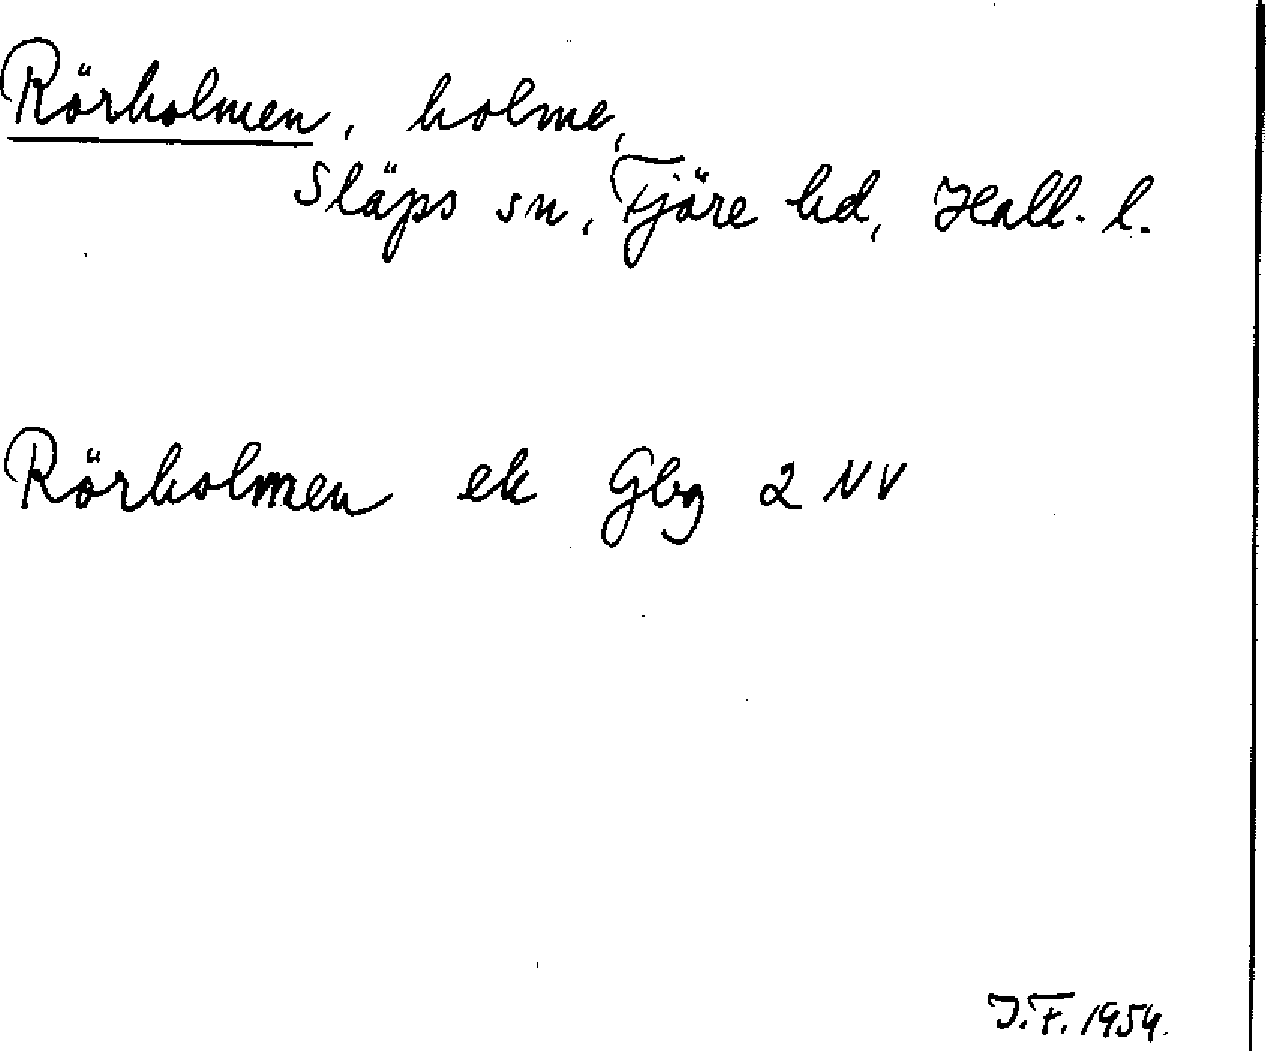 Rörholmen, holme,
Släps sn, Fjäre hd, Hall. l.
Rörholmen ek Gbg 2 NV
J.F. 1954.